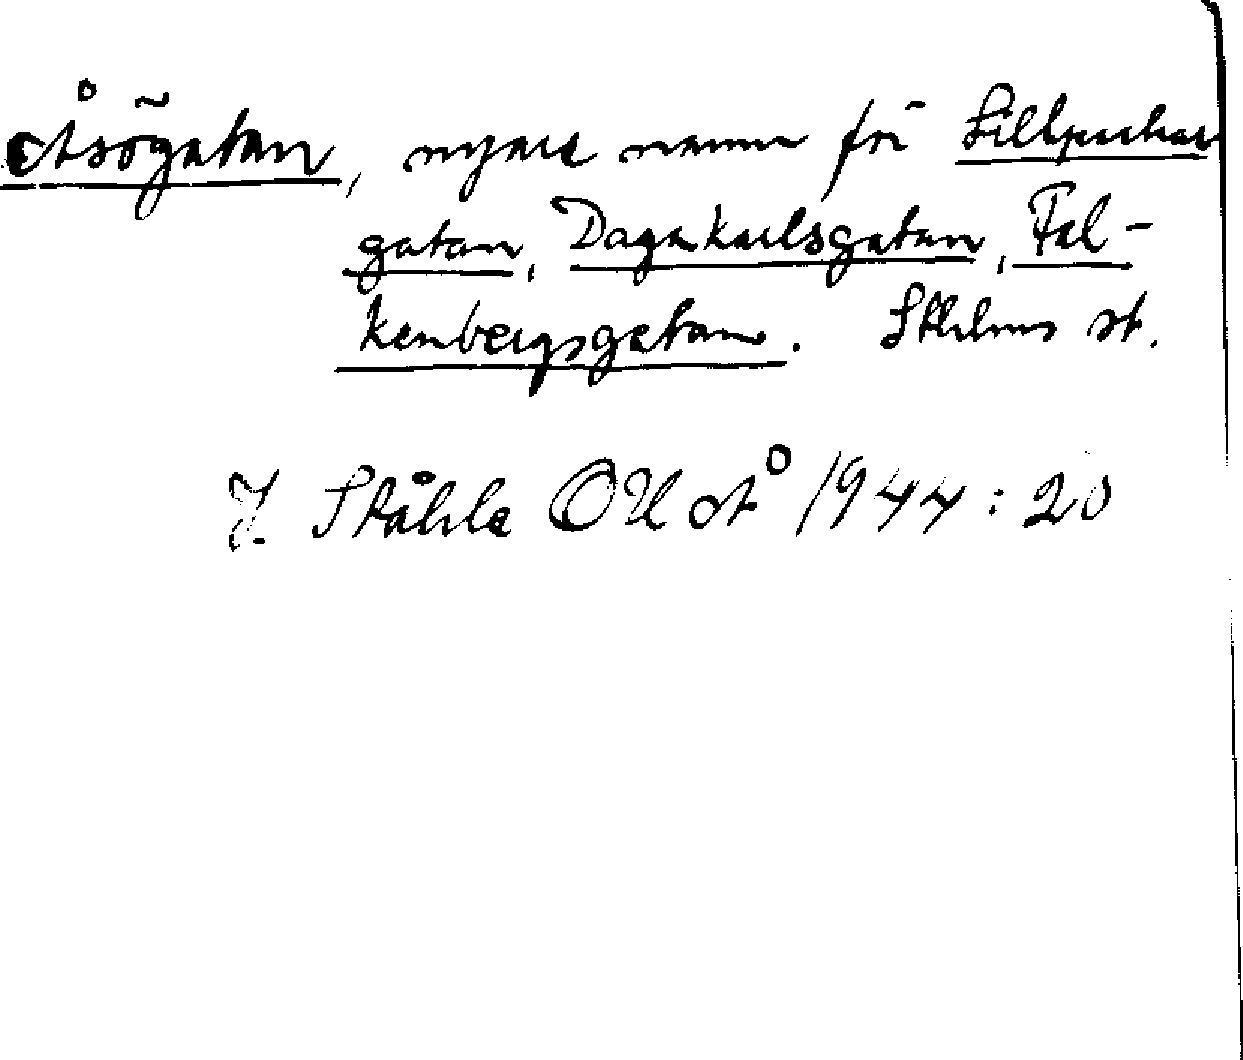 Åsögatan, nyare namn för Sillpackar
gatan, Dagakarlsgatan, Fal-
kenbergsgatan. Sthlms st.
J. Ståhle OUÅ 1944:20